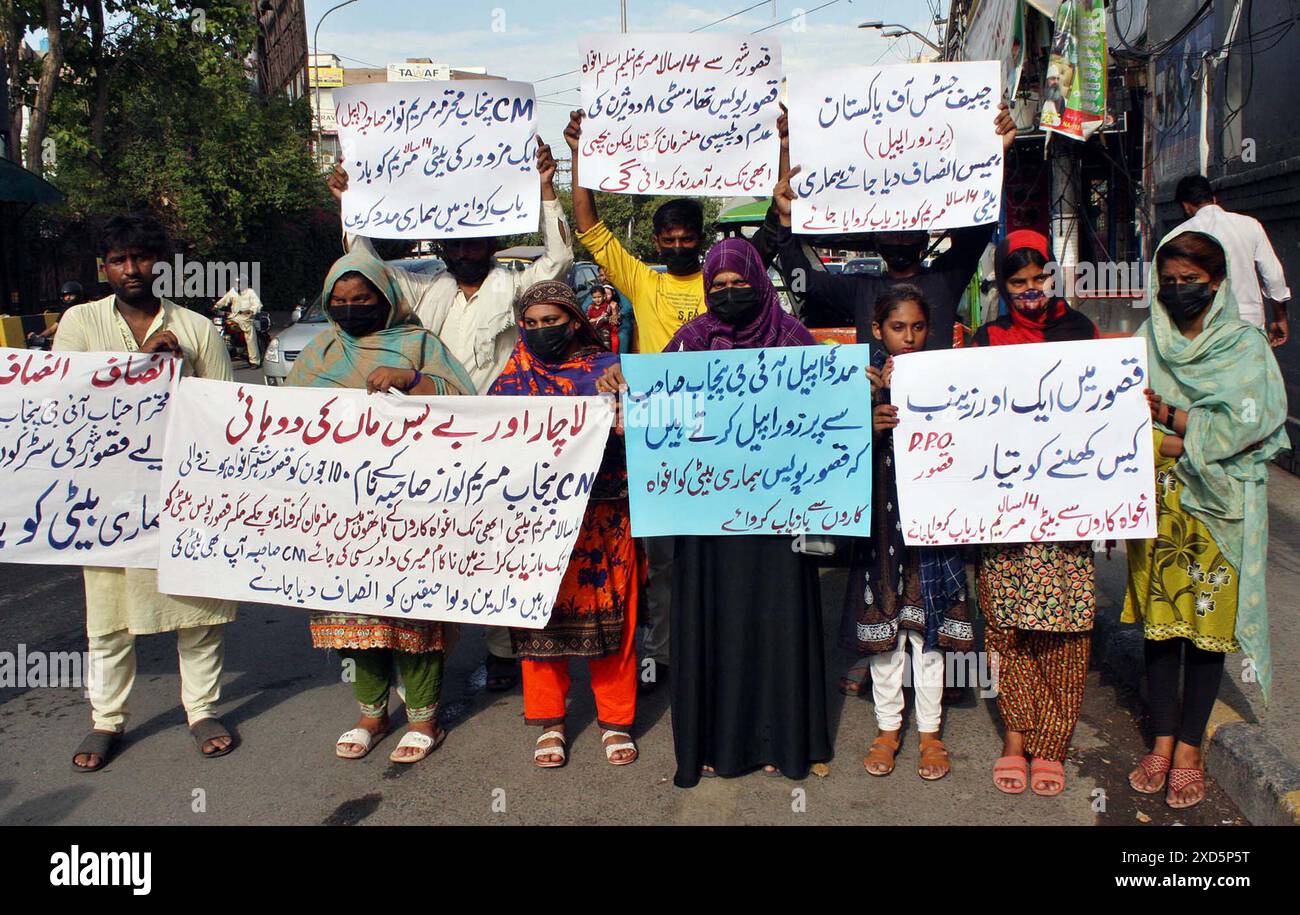 TAWAF
CM پنجاب محترمہ مریم نواز صاحبہ (اپیل)
ایک مزدور کی بیٹی 14سالا مریم کو باز
یاب کروانے میں ہماری مدد کریں
قصور شہر سے 14سالا مریم نیلم اسلیم اغواہ
قصور پولیس تھانہ سٹی A ڈویژن کی
عدم دلچپسی ملزمان گرفتار لیکن بچی
ابھی تک برآمد نہ کروائی گئی
چیف جسٹس آف پاکستان
(پر زور اپیل)
ہمیں انصاف دیا جائے ہماری
بیٹی 14سالا مریم کو باز یاب کروایا جائے
انصاف انصاف
محترم جناب آئی جی پنجاب
ہماری بیٹی کو
لاچار اور بے بس ماں کی دوہائی
CM پنجاب مریم نواز صاحبہ کے نام 10 جون کو قصور شہر اغواہ ہونے والی
سالا مریم بیٹی ابھی تک اغواہ کاروں کے ہاتھوں میں ملزمان گرفتار ہو چکے مگر قصور پولیس بیٹی کو
باز یاب کرانے میں ناکام میری داد رسی کی جائے CM صاحبہ آپ بھی بیٹی کی
ہیں والدین و لواحقین کو انصاف دیا جائے
مدد اپیل آئی جی پنجاب صاحب
سے پر زور اپیل کرتے ہیں
کہ قصور پولیس ہماری بیٹی کو اغواہ
کاروں سے باز یاب کروائے
قصور میں ایک اور زینب
D.P.O. کیس کھلنے کو تیار
قصور
اغواہ کاروں سے بیٹی 14سالا مریم باز یاب کروایا جائے
alamy
Image ID: 2XD5P5T
www.alamy.com